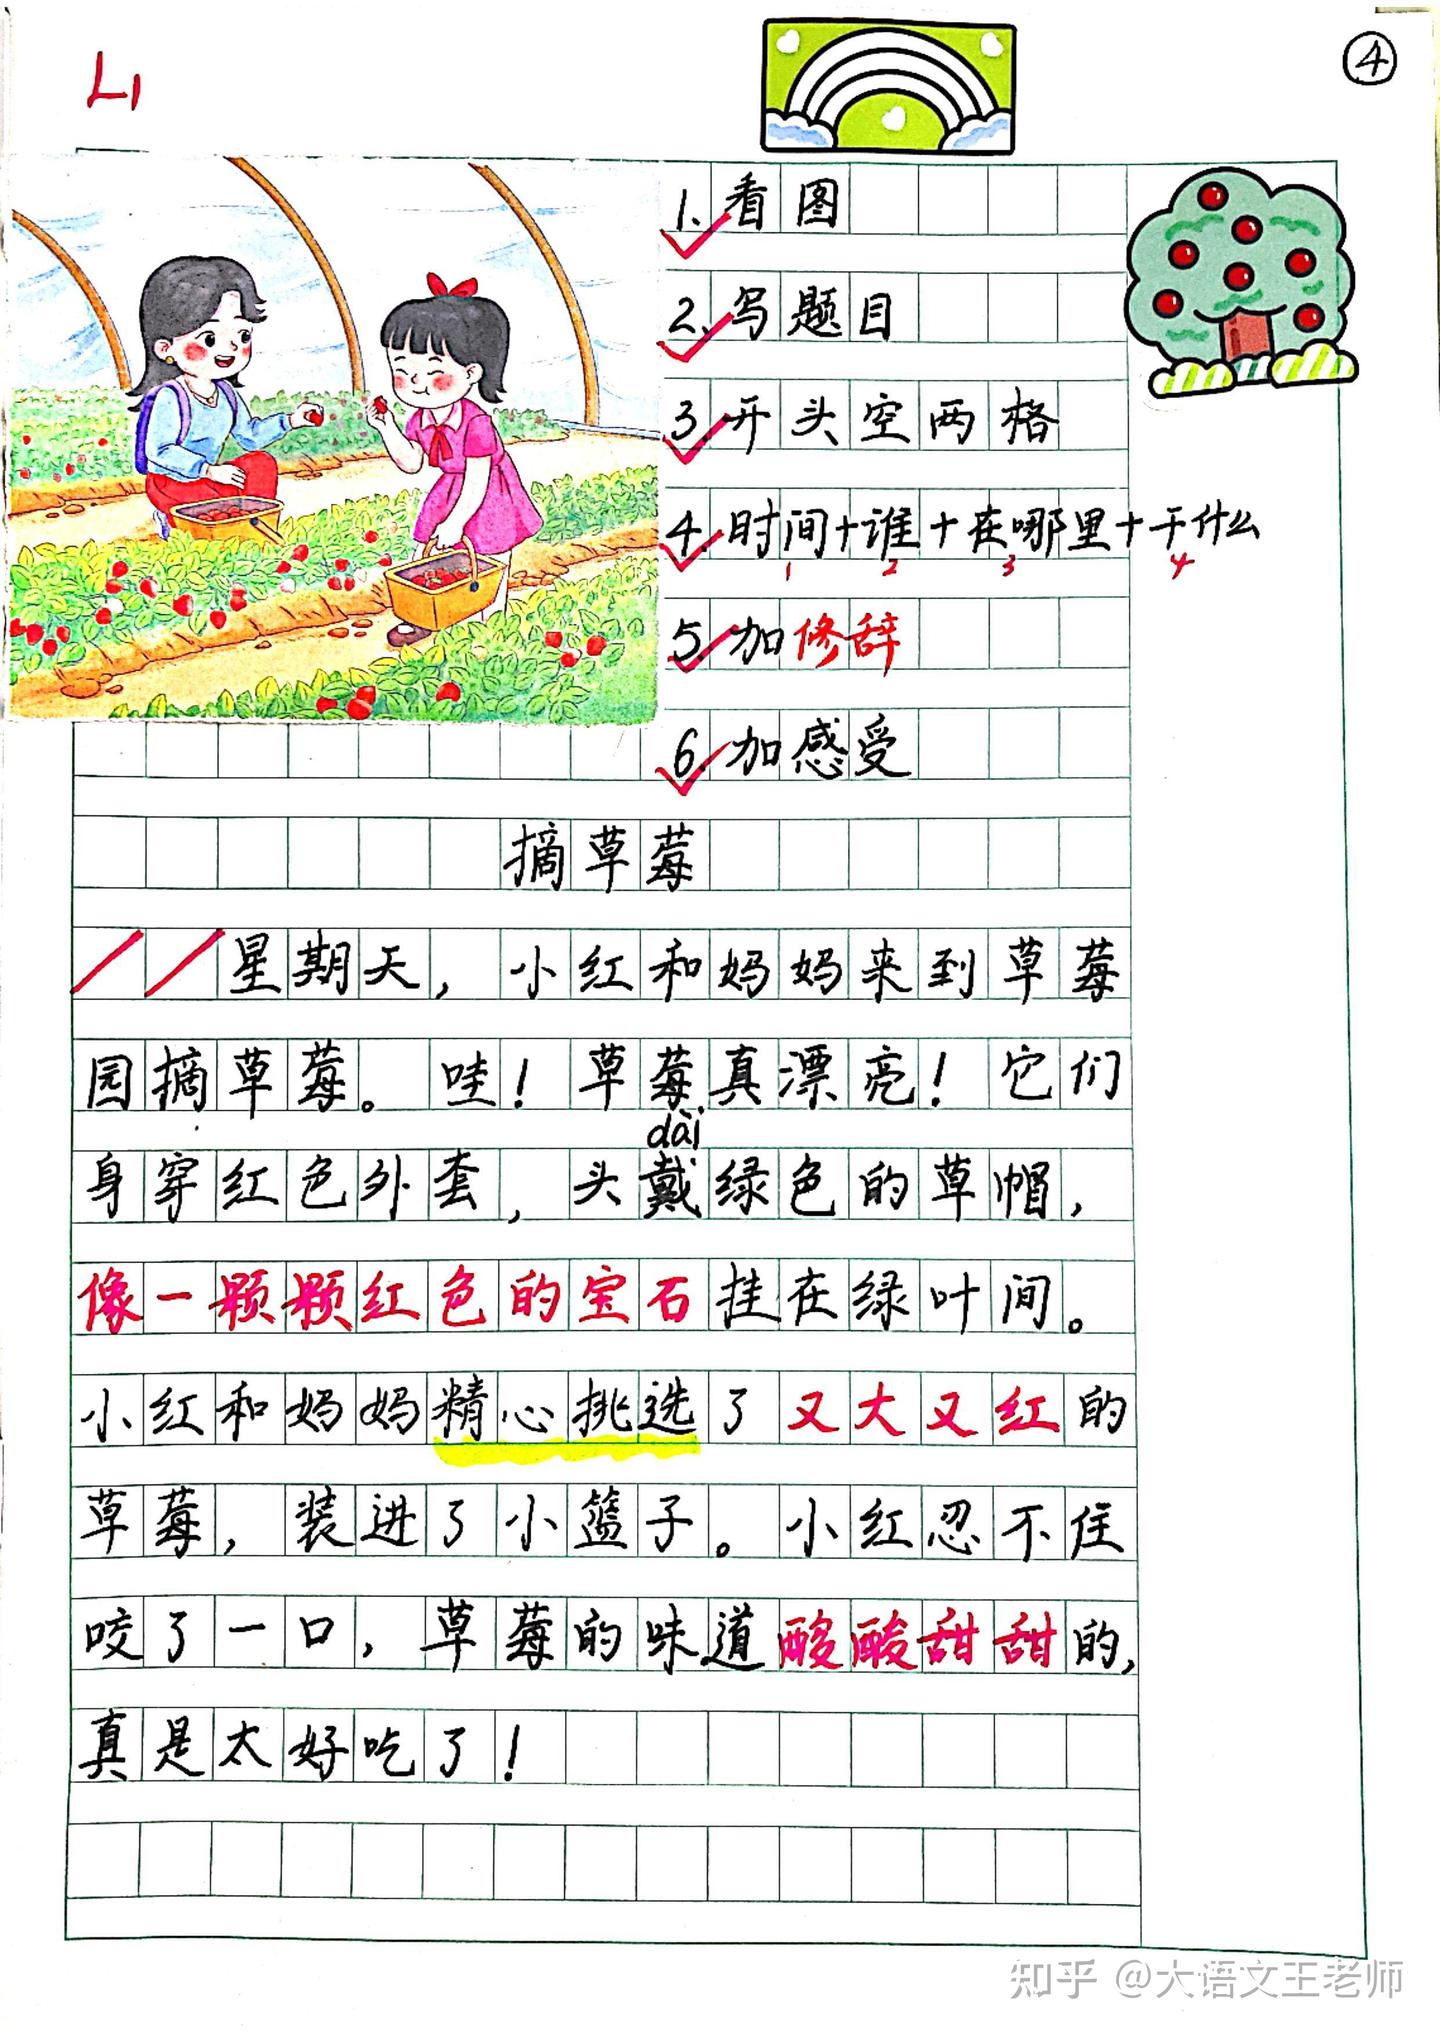 L1
④
1. 看图
2. 写题目
3. 开头空两格
4. 时间+谁+在哪里+干什么
1 2 3 4
5. 加修辞
6. 加感受
摘草莓
星期天，小红和妈妈来到草莓
园摘草莓。哇！草莓真漂亮！它们
dài
身穿红色外套，头戴绿色的草帽，
像一颗颗红色的宝石挂在绿叶间。
小红和妈妈精心挑选了又大又红的
草莓，装进了小篮子。小红忍不住
咬了一口，草莓的味道酸酸甜甜的，
真是太好吃了！
知乎 @大语文王老师